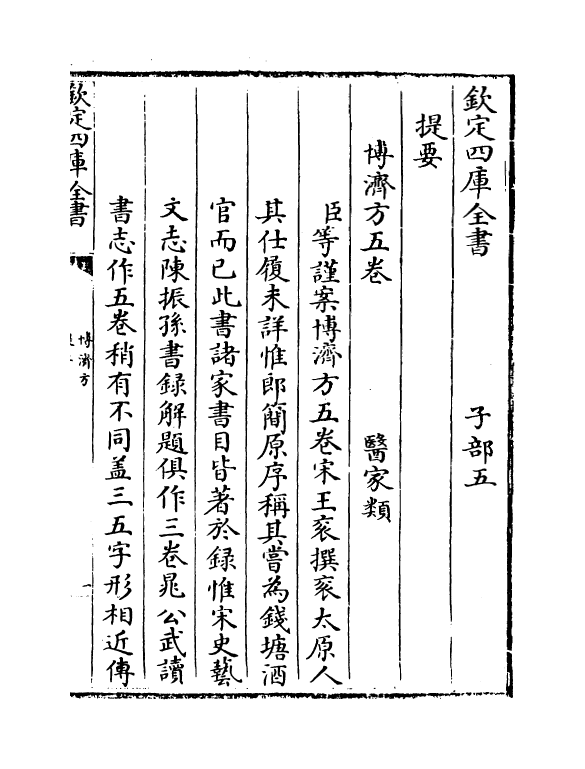 欽定四庫全書 子部五
提要
博濟方五卷 醫家類
臣等謹案博濟方五卷宋王衮撰衮太原人
其仕履未詳惟郎簡原序稱其嘗為錢塘酒
官而已此書諸家書目皆著於録惟宋史藝
文志陳振孫書録解題俱作三卷晁公武讀
書志作五卷稍有不同盖三五字形相近傳
欽定四庫全書
博濟方
一